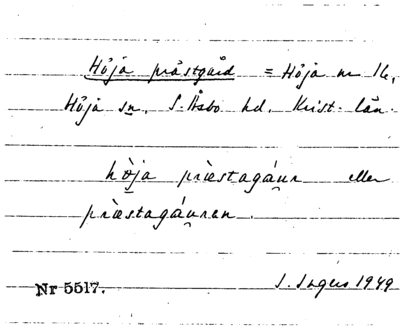 Höja prästgård = Höja nr 16,
Höja sn, S. Åsbo hd, Krist. län.
hö̀ja prìestagáu̯r eller
prìestagáu̯ren.
Nr 5517. S. Ingers 1949